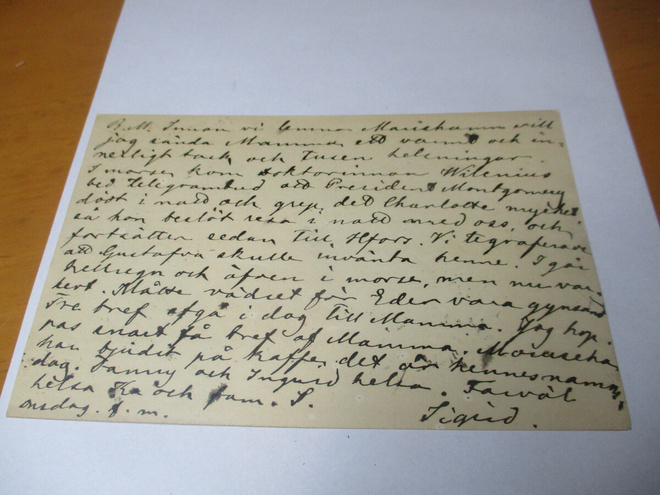 B.M. Innan vi lemna Mariehamn vill
jag sända Mamma ett varmt och in-
nerligt tack och tusen helsningar.
I morse kom doktorinnan Wilenius
bed telegrambud att President Montgomery
dött i natt och grep det Charlotte mycket
så hon beslöt resa i natt med oss, och
fortsätter sedan till Hfors. Vi tegraferade
att Gustafva skulle invänta henne. I går
hellregn och äfven i morse, men nu vac-
kert. Måtte vädret för Eder vara gynsamt
Tre bref afgå i dag till Mamma. Jag hop-
pas snart få bref af Mamma.
har bjudit på kaffe, det är hennes namns-
dag. Fanny och Ingrid helsa. Farväl
helsa och fam. S.
onsdag. f.m. Sigrid.